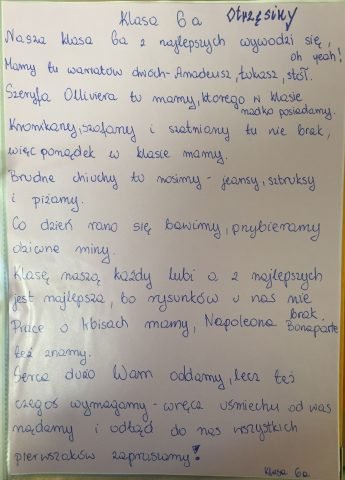 Klasa 6a Otrzęsiny
Nasza klasa 6a z najlepszych wywodzi się,
oh yeah!
Mamy tu wariatów dwóch-Amadeusz, Łukasz, stół.
Szeryfa Olliviera tu mamy, którego w klasie
rzadko posiadamy.
Kronikarzy, szafarzy i szatniarzy tu nie brak,
więc porządek w klasie mamy.
Brudne ciuchy tu nosimy - jeansy, sztruksy
i piżamy.
Co dzień rano się bawimy, przybieramy
dziwne miny.
Klasę naszą każdy lubi a z najlepszych
jest najlepsza, bo rysunków u nas nie
brak.
Prace o mamy, Napoleona Bonaparte
też znamy.
Serca dużo Wam oddamy, lecz też
czegoś wymagamy - wręcz uśmiechu od was
żądamy i odtąd do nas wszystkich
pierwszaków zapraszamy!
Klasa 6a